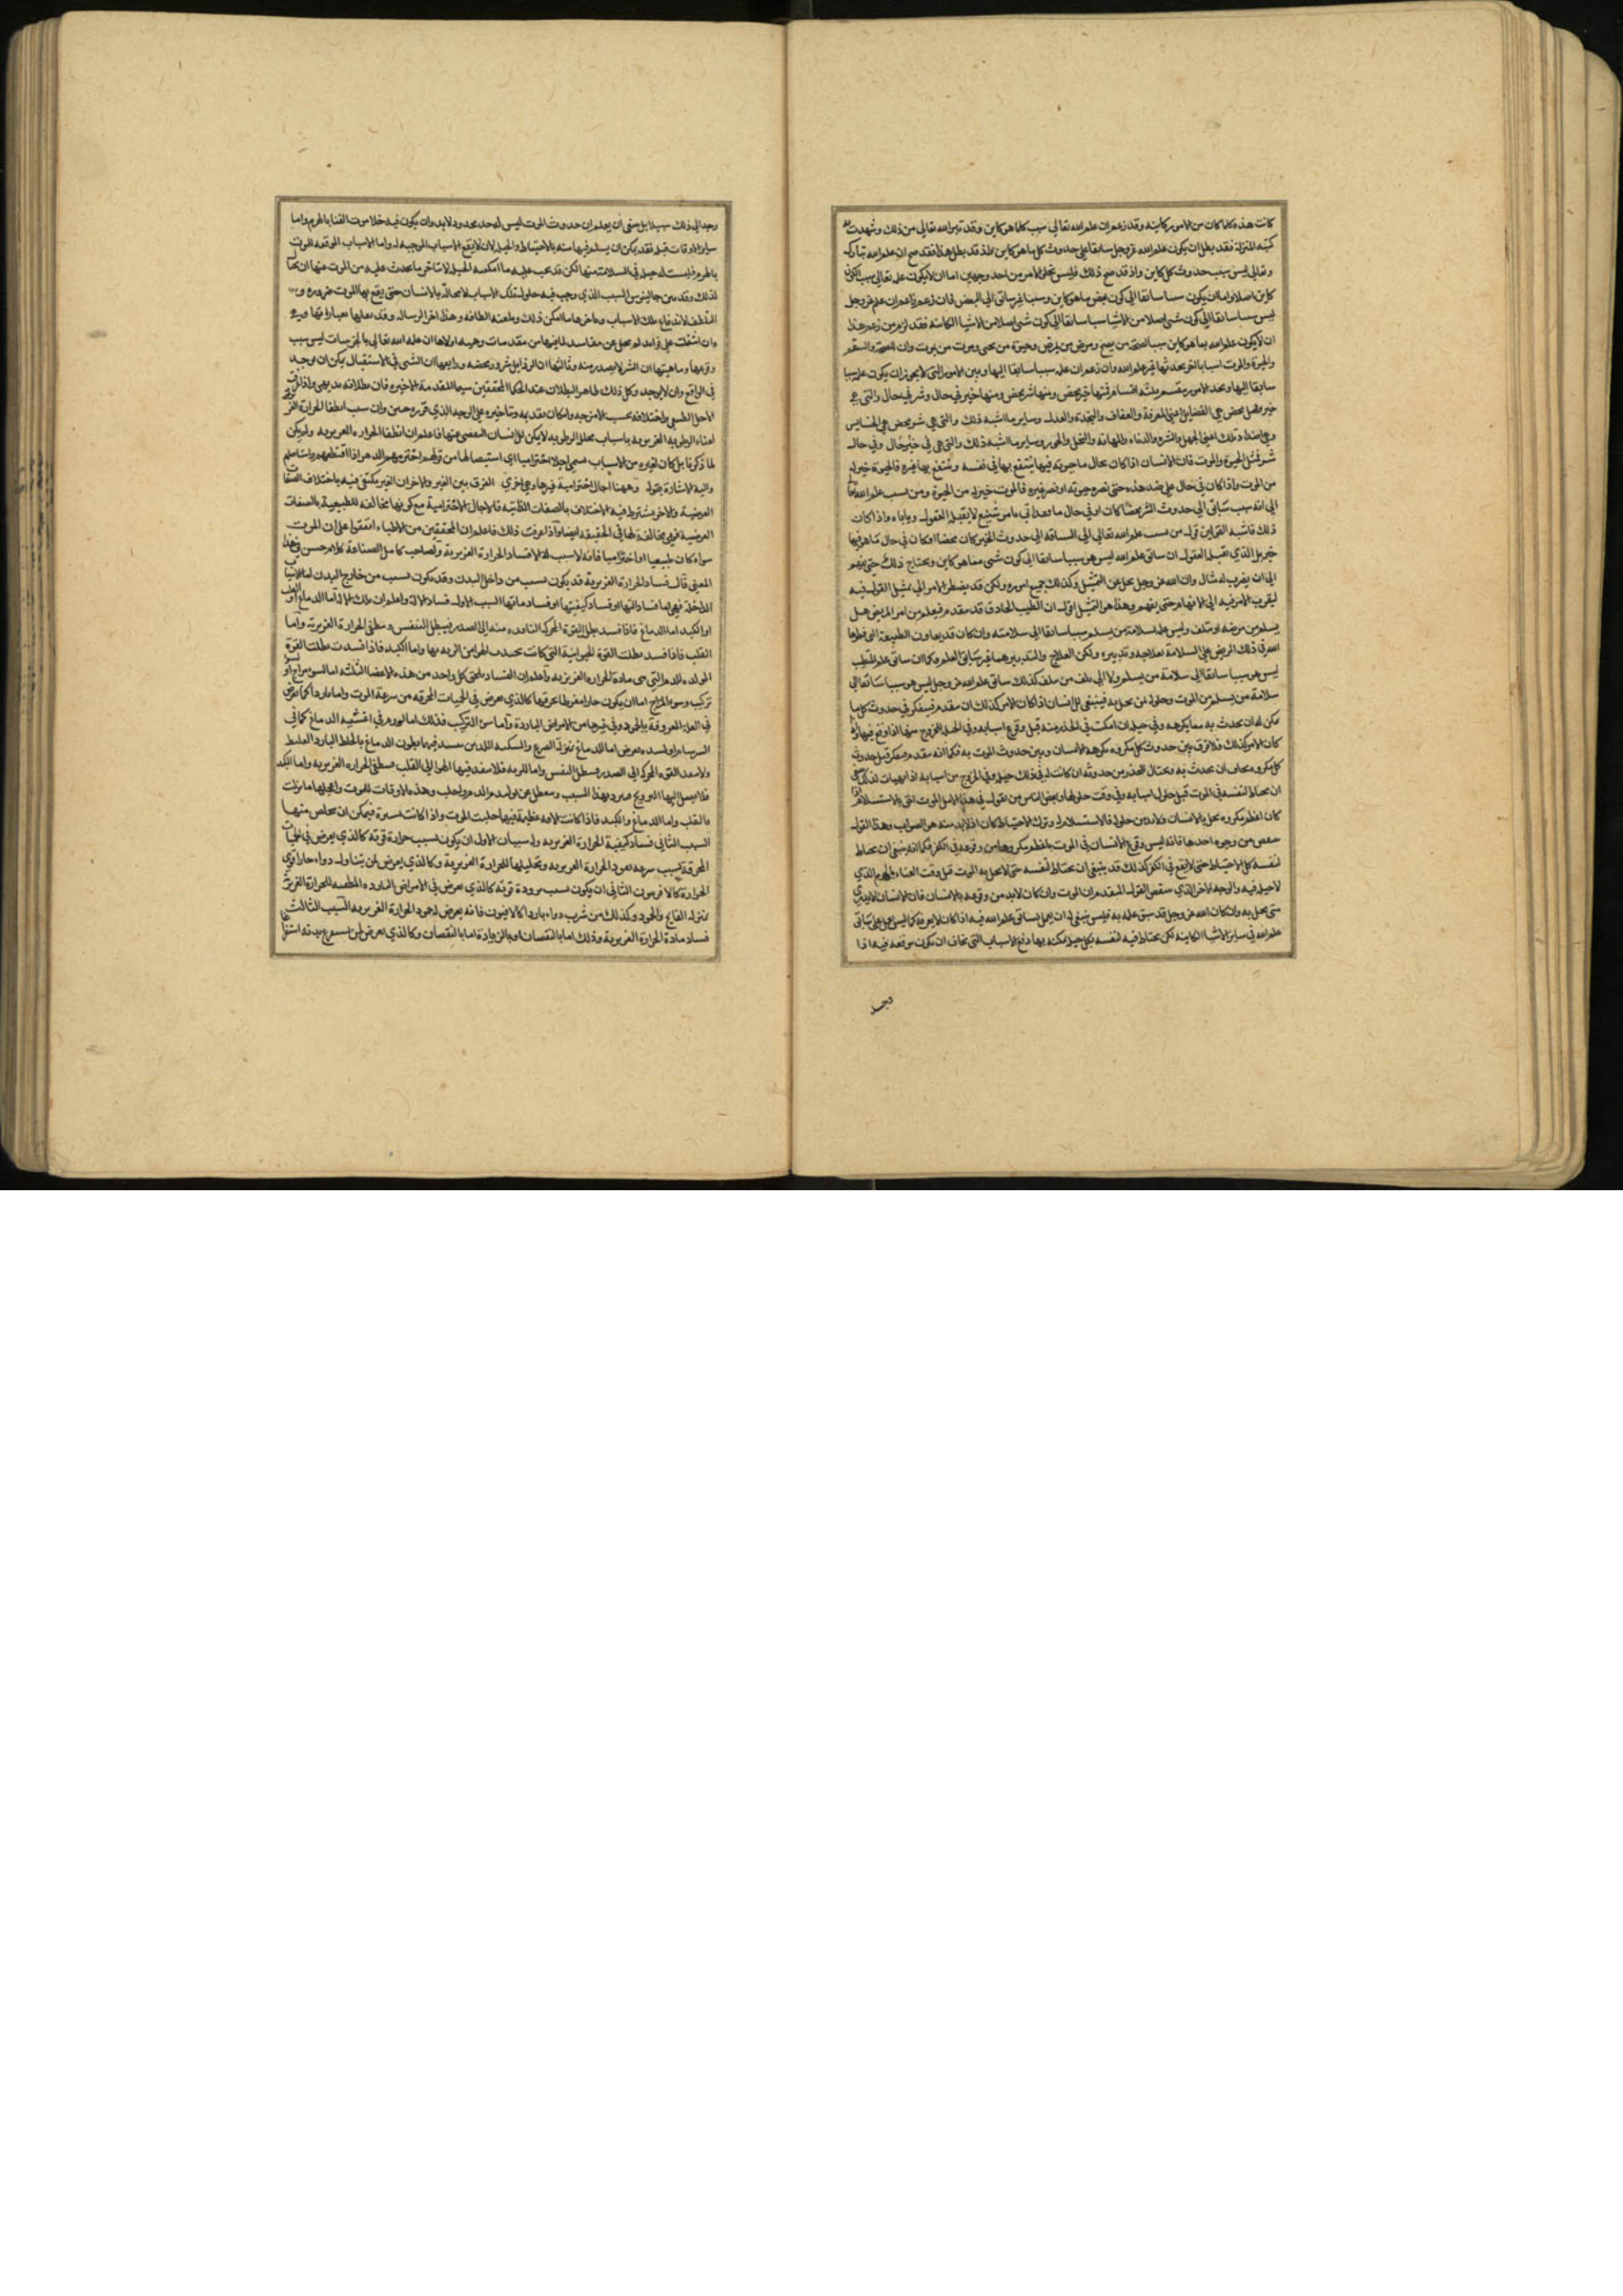 كانت هذه كلها كان من الامور كاينه وقد زعم ان علم الله تعالى سبب كلما هو كاين وقد تبرا الله تعالى من ذلك وشهدت
كتبه المنزلة فقد بطل ان يكون علم الله عز وجل سابقا على حدوث كل ما هو كاين فاذ قد بطل هذا فقد صح ان علم الله تبارك
وتعالى ليس سبب حدوث كل كاين واذ قد صح ذلك فليس يخلو الامر من احد وجهين اما ان لا يكون علمه تعالى سببا لكون
كاين اصلا واما ان يكون سببا سابقا الى كون بعض ما هو كاين وسببا غير سابق الى البعض فان زعم زاعم ان علمه عز وجل
ليس سببا سابقا الى كون شى اصلا من الاشيا الكاينه فقد لزم من زعم هذا
ان لا يكون علم الله بما هو كاين سببا لصحة من يصح ومرض من يمرض وحيوة من يحيى وموت من يموت وان للصحة والسقم
والحيوة والموت اسبابا اخر يحدثها غير علم الله وان زعم ان علمه سببا سابقا اليها وبين الامور التى لا يجوز ان يكون علمه سببا
سابقا اليها ونجد الامور مقسم بثلثه اقسام فمنها خير محض ومنها شر محض ومنها خير فى حال وشر فى حال والتى هى
خير محض هى الفضايل اعنى المعرفة والعفاف والنجدة والعدل وساير ما اشبه ذلك والتى هى شر محض هى الخسايس
وهى اضداد تلك اعنى الجهل والشره والدناءه والمهانه والبخل والجور وساير ما اشبه ذلك والتى هى فى خير حال وفى حال
شر فمثل الحيوة والموت فان الانسان اذا كان بحال ما حيوته فيها ينتفع بها فى نفسه وينتفع بها غيره فالحيوة خير له
من الموت واذا كان فى حال على ضد هذه حتى تضره حيوته او تضر غيره فالموت خير له من الحيوة ومن نسب علم الله
الى انه سبب سابق الى حدوث الشر محضا كان او فى حال ما فقد اتى بامر شنيع لا يقبله العقول وياباه واذا كان
ذلك فاشبه القولين قول من نسب علم الله تعالى الى السابقه الى حدوث الخير كان محضا او كان فى حال ما هو فيها
خير بل الذى تقبله العقول ان سابق علم الله ليس هو سببا سابقا الى كون شى مما هو كاين ويحتاج ذلك حتى يفهم
الى ان يضرب له مثال وان الله عز وجل يجل عن التمثيل وكذلك جميع اموره ولكن قد يضطر الامر الى تمثيل القول فيه
ليقرب الامر فيه الى الافهام حتى يفهم وهذا هو التمثيل اقول ان الطبيب الحاذق قد يتقدم فيعلم من امر المريض هل
يسلم من مرضه او يتلف وليس علمه بسلامة من يسلم سببا سابقا الى سلامته وان كان قد يعاون الطبيعة
ذلك المريض على السلامة بعلاجه وتدبيره ولكن العلاج والتدبير هما غير سابق العلم وكما ان سابق علم الطبيب
ليس هو سببا سابقا الى سلامة من يسلم ولا الى تلف من يتلف كذلك سابق علم الله عز وجل ليس هو سببا سابقا الى
سلامة من يسلم من الموت وحلوله لمن يحل به فينبغى للانسان اذا كان الامر كذلك ان يتقدم فيفكر فى حدوث كل ما
يمكن له ان يحدث به مما يكرهه وفى حيله ان امكنت فى الحذر منه قبل وقوع اسبابه وفى الحيلة للخروج منها اذا وقع فيها
كان الامر كذلك فلا فرق بين حدوث كل مكروه مكرهه الانسان وبين حدوث الموت به فكما انه يتقدم فيفكر قبل حدوث
كل مكروه يخاف ان يحدث به ويحتال للحذر من حدوثه ان كانت له فى ذلك حيله وفى الخروج من اسبابه
ان يحتاط لنفسه فى الموت قبل حلول اسبابه وفى وقت حلولها وبعض الناس من يقول فى هذا
كان اعظم مكروه يحل بالانسان ولا بد من حلوله فالاستسلام له وترك الاحتياط كان اذ لا بد منه هو الصواب وهذا القول
ينتقض من وجوه احدها فانه ليس وقوع الانسان فى الموت باعظم مكروها من وقوعه فى الكرب فكما انه ينبغى ان يحتاط
لنفسه كل الاحتياط حتى لا يقع فى الكرب كذلك قد ينبغى ان يحتاط لنفسه حتى لا يحل به الموت قبل وقت الفناء بالهرم الذى
لا حيله فيه والوجه الاخر الذى ينقض القول المتقدم ان الموت وان كان لا بد من وقوعه بالانسان فان الانسان لا يدرى
متى يحل به وان كان الله عز وجل قد سبق علمه به فليس ينبغى له ان يعمل بسابق علم الله فيه اذا كان لا يعرفه كما ليس يعمل على سابق
علم الله فى ساير الاشيا الكاينه لكن يحتاط فيه لنفسه بكل حيلة يمكنه بها دفع الاسباب التى يخاف ان يكون موقعه فيه اذا
وجد
وجد الى ذلك سبيلا بل ينبغى ان يعلم ان حدوث الموت ليس له حد محدود لا بد وان يكون فيه خلا موت الفنا بالهرم واما
ساير الاوقات قبله فقد يمكن ان يسلم فيها منه بالاحتياط والحيل لان لا يقع الاسباب الموجبه له واما الاسباب الموقعه للموت
بالهرم فليست له حيله فى السلامة منها لكن قد يجب عليه ما امكنه الحيل لاتاخر ما يحدث عليه من الموت منها ان
لذلك وقد بين جالينوس السبب الذى وجب فيه حلول تلك الاسباب لا محاله بالانسان حتى يقع بها الموت ضروره
التلطف لاندفاع تلك الاسباب وما امكن ذلك وبلغته الطاقه وهذا اخر الرساله وقد نقلها بعباراتها
وان اشتملت على فوايد لم يخل عن مفاسد لما فيها من مقدمات وهميه اولاها ان علم الله تعالى بالجزييات ليس سبب
وقوعها وماهيتها ان الشر لا يصدر منه وثالثها ان الرذايل شرور محضه ورابعها ان الشى فى الاستقبال يمكن ان يوجد
فى الواقع وان لا يوجد وكل ذلك ظاهر البطلان عند الحكما المحققين سيما المقدمة الاخيره فان بطلانه بديهى واذ
الاجل الطبيعى واختلافه بحسب الامزجه وامكان تقديمه وتاخيره على الوجه الذى قرره حنين وان سبب انطفا الحرارة
افناء الرطوبه الغريزيه باسباب محللة للرطوبه لا يمكن للانسان التفصى عنها فاعلم ان انطفا الحراره الغريزيه ولم يكن
لما ذكرنا بل كان لغيره من الاسباب سمى اجلا اختراميا اى استيصالها من قولهم اخترمهم الدهر اذا اقتطعهم واستاصلهم
واليه الاشارة بقوله وههنا اجال اخترامية غيرها وهى اخرى الفرق بين الغير والاخر ان الغير يكتفى فيه باختلاف
العرضية والاخر يشترط فيه الاختلاف بالصفات الذاتيه فالاجال الاخترامية مع كونها مخالفه للطبيعية بالصفات
العرضية فهى مخالفة لها فى الحقيقه ايضا واذا عرفت ذلك فاعلم ان المحققين من الاطباء اتفقوا على ان الموت
سواء كان طبيعيا او اختراميا فانه لا سبب له الا فساد الحرارة الغريزية ولصاحب كامل الصناعة كلام حسن فى هذا
المعنى قال فساد الحرارة الغريزية قد يكون بسبب من داخل البدن وقد يكون بسبب من خارج البدن اما الاسباب
الداخلة فهى اما فساد التها او فساد كيفيتها او فساد مادتها السبب الاول فساد الالة واعلم ان تلك الالة اما الدماغ او القلب
او الكبد اما الدماغ فاذا فسد بطل القوة المحركه النافذه منه الى الصدر فيبطل التنفس وينطفى الحرارة الغريزية واما
القلب فاذا فسد بطلت القوة الحيوانية التى كانت تجذب الهوا من الريه بها واما الكبد فاذا فسدت بطلت القوة
المولده للدم التى هى مادة للحراره الغريزيه واعلم ان الفساد يلحق كل واحد من هذه الاعضا الثلثه اما لسو مزاج او
تركيب وسو المزاج اما ان يكون حارا مفرطا يحرقها كالذى يعرض فى الحميات المحرقه من سرعة الموت واما باردا كما يعرض
فى العلة المعروفة بالجمود وفى غيرها من الامراض الباردة واما سو التركيب فذلك اما لورم فى اغشية الدماغ كما فى
السرسام او لسده تعرض اما للدماغ بمنزلة الصرع والسكته اللذين ينسد فيهما بطون الدماغ بالخلط البارد الغليظ
ولا ينفذ القوه المحركه الى الصدر فيبطل النفس واما للريه فلا ينفذ فيها الهوا الى القلب فينطفى الحراره الغريزيه واما الكبد
فلا يصل اليها الترويح فيبرد بهذا السبب ويتعطل عن توليد الدم
بالقلب واما الدماغ والكبد فاذا كانت الافه عظيمة فيها جلبت الموت واذا كانت يسيرة فيمكن ان يتخلص منها
السبب الثانى فساد كيفية الحرارة الغريزيه وله سببان الاول ان يكون بسبب حرارة قوية كالذى يعرض فى الحميات
المحرقة بسبب سرعه نفود الحرارة الغريزيه وتحليلها للحرارة الغريزية وكالذى يعرض لمن يتناول دواء حارا قوى
الحرارة كالافربيون الثانى ان يكون بسبب برودة قوية كالذى يعرض فى الامراض البارده المطفيه للحرارة
بمنزله الفالج والجمود وكذلك من شرب دواء باردا كالافيون فانه يعرض له جمود الحرارة الغريزيه السبب الثالث
فساد مادة الحرارة الغريزية وذلك اما بالنقصان او بالزيادة اما بالنقصان وكالذى يعرض لمن يستفرغ بدنه